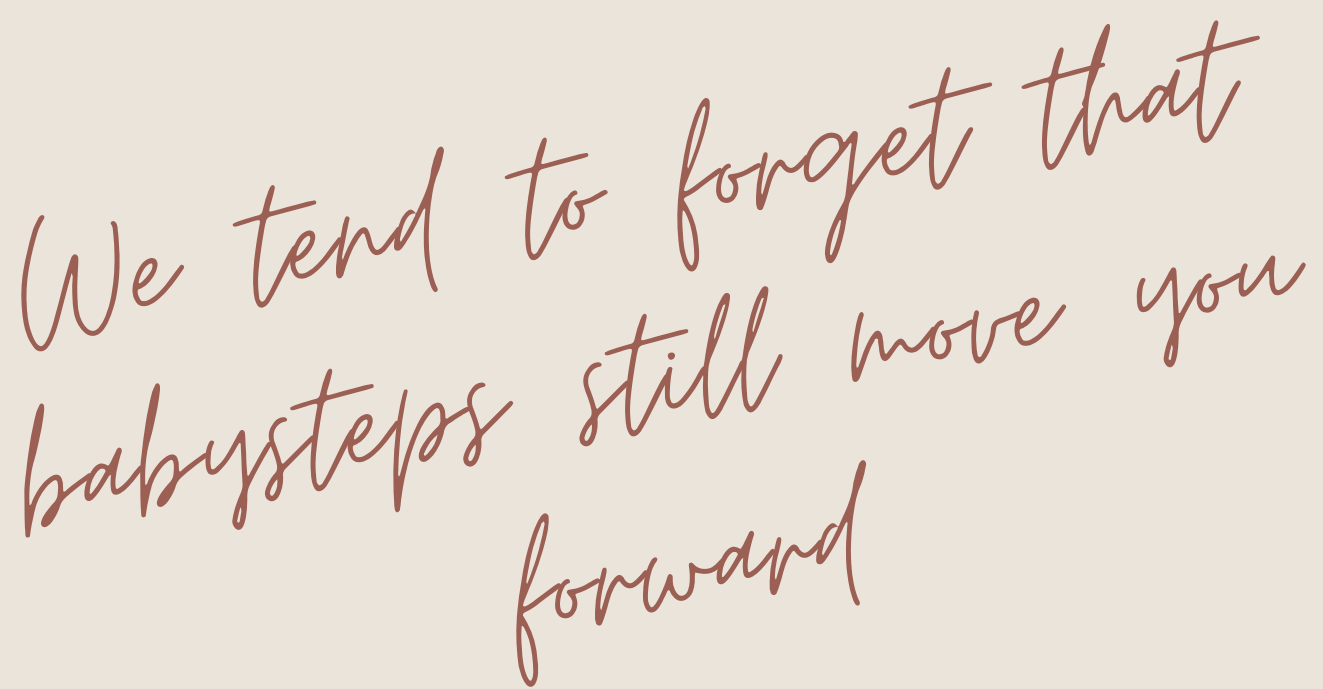 We tend to forget that
babysteps still move you
forward